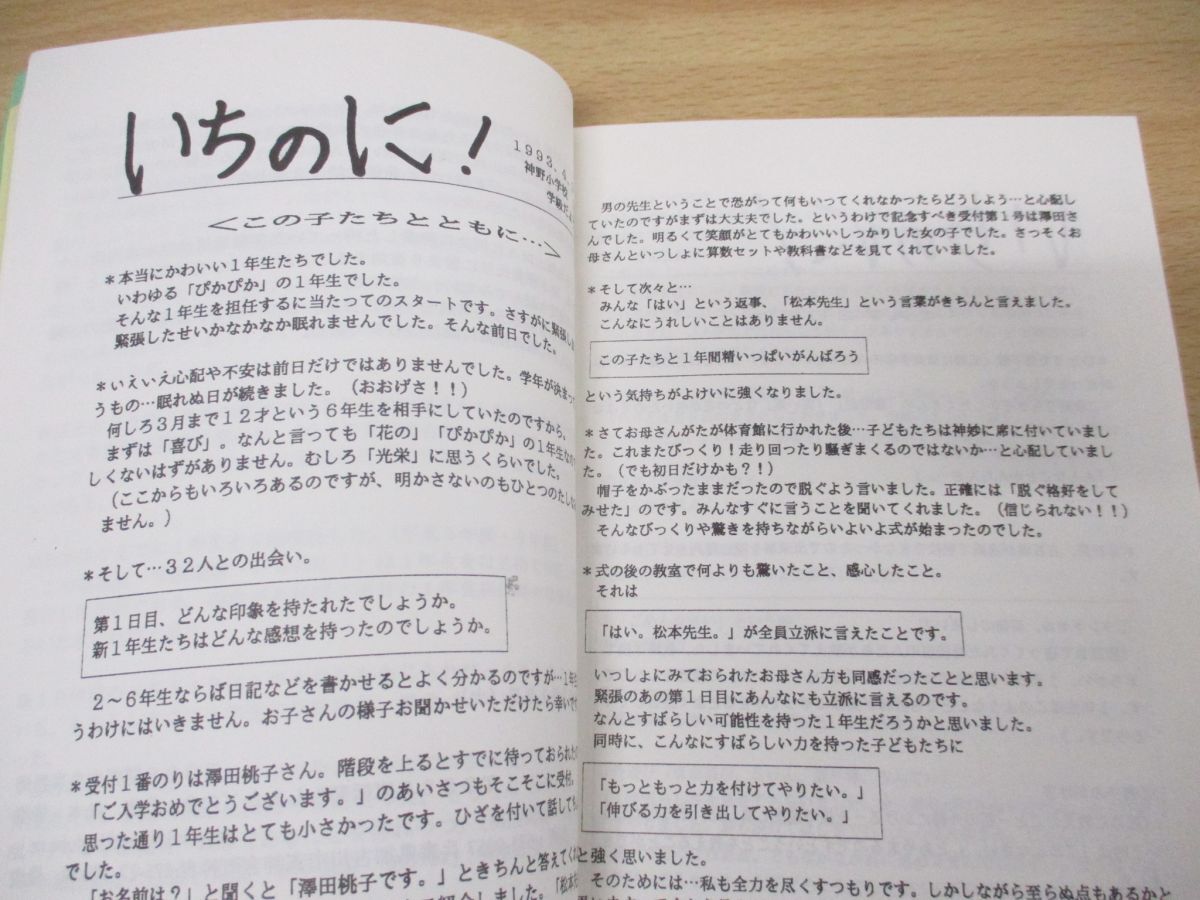 いちのに！
1993.4.
神野小学校
学級だ
＜この子たちとともに…＞
＊本当にかわいい1年生たちでした。
いわゆる「ぴかぴか」の1年生でした。
そんな1年生を担任するに当たってのスタートです。さすがに緊張し
緊張したせいかなかなか眠れませんでした。そんな前日でした。
＊いえいえ心配や不安は前日だけではありませんでした。学年が決まっ
うもの…眠れぬ日が続きました。（おおげさ！！）
何しろ3月まで12才という6年生を相手にしていたのですから、
まずは「喜び」。なんと言っても「花の」「ぴかぴか」の1年生な
しくないはずがありません。むしろ「光栄」に思うくらいでした。
（ここからもいろいろあるのですが、明かさないのもひとつのたし
ません。）
＊そして…32人との出会い。
第1日目、どんな印象を持たれたでしょうか。
新1年生たちはどんな感想を持ったのでしょうか。
2～6年生ならば日記などを書かせるとよく分かるのですが…1年
うわけにはいきません。お子さんの様子お聞かせいただけたら幸いで
＊受付1番のりは澤田桃子さん。階段を上るとすでに待っておられた
「ご入学おめでとうございます。」のあいさつもそこそこに受付。
思った通り1年生はとても小さかったです。ひざを付いて話して
でした。
「お名前は？」と聞くと「澤田桃子です。」ときちんと答えてく
紹介しました。「松本
男の先生ということで恐がって何もいってくれなかったらどうしよう…と心配し
ていたのですがまずは大丈夫でした。というわけで記念すべき受付第1号は澤田さ
んでした。明るくて笑顔がとてもかわいいしっかりした女の子でした。さっそくお
母さんといっしょに算数セットや教科書などを見てくれていました。
＊そして次々と…
みんな「はい」という返事、「松本先生」という言葉がきちんと言えました。
こんなにうれしいことはありません。
この子たちと1年間精いっぱいがんばろう
という気持ちがよけいに強くなりました。
＊さてお母さんがたが体育館に行かれた後…子どもたちは神妙に席に付いていまし
た。これまたびっくり！走り回ったり騒ぎまくるのではないか…と心配していまし
た。（でも初日だけかも？！）
帽子をかぶったままだったので脱ぐよう言いました。正確には「脱ぐ格好をして
みせた」のです。みんなすぐに言うことを聞いてくれました。（信じられない！！）
そんなびっくりや驚きを持ちながらいよいよ式が始まったのでした。
＊式の後の教室で何よりも驚いたこと、感心したこと。
それは
「はい。松本先生。」が全員立派に言えたことです。
いっしょにみておられたお母さん方も同感だったことと思います。
緊張のあの第1日目にあんなにも立派に言えるのです。
なんとすばらしい可能性を持った1年生だろうかと思いました。
同時に、こんなにすばらしい力を持った子どもたちに
「もっともっと力を付けてやりたい。」
「伸びる力を引き出してやりたい。」
と強く思いました。
そのためには…私も全力を尽くすつもりです。しかしながら至らぬ点もあるかと